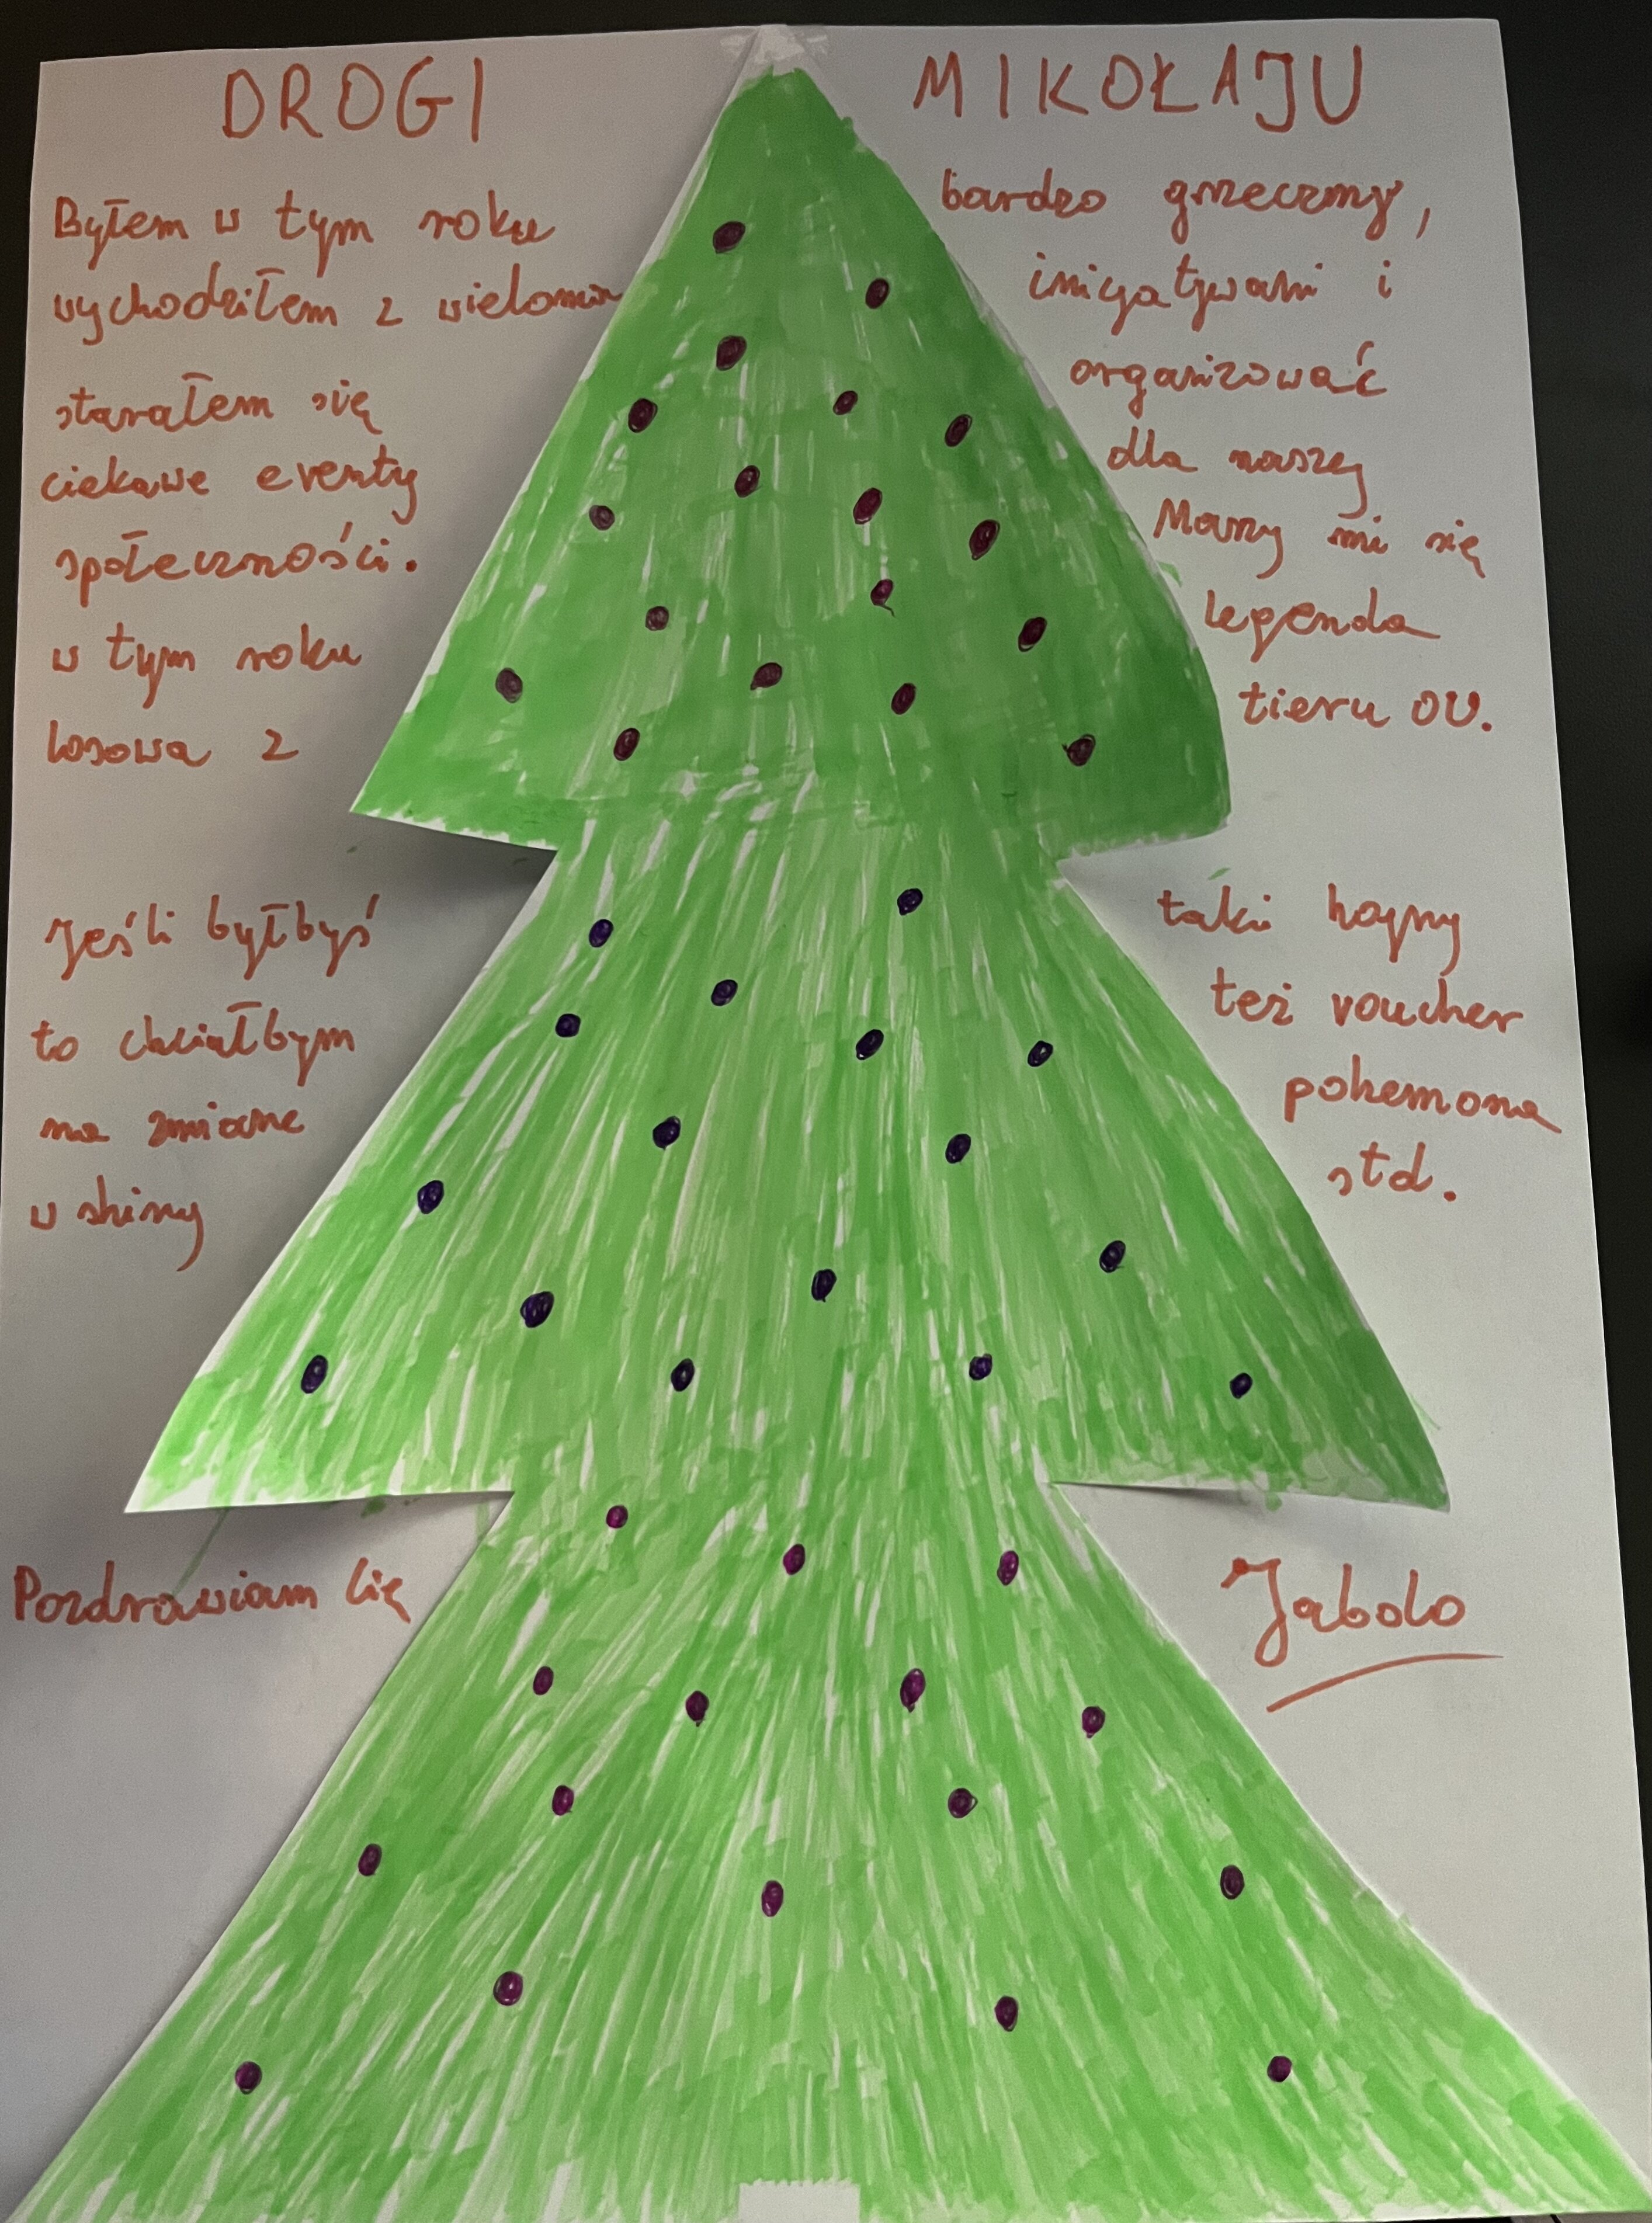 DROGI MIKOŁAJU
Byłem w tym roku bardzo grzeczny,
wychodziłem z wieloma inicjatywami i
starałem się organizować
ciekawe eventy dla naszej
społeczności. Marzy mi się
w tym roku legenda
losowa z tieru OU.
Jeśli byłbyś taki hojny
to chciałbym też voucher
na zmiane pokemona
w shiny std.
Pozdrawiam Cię Jabolo